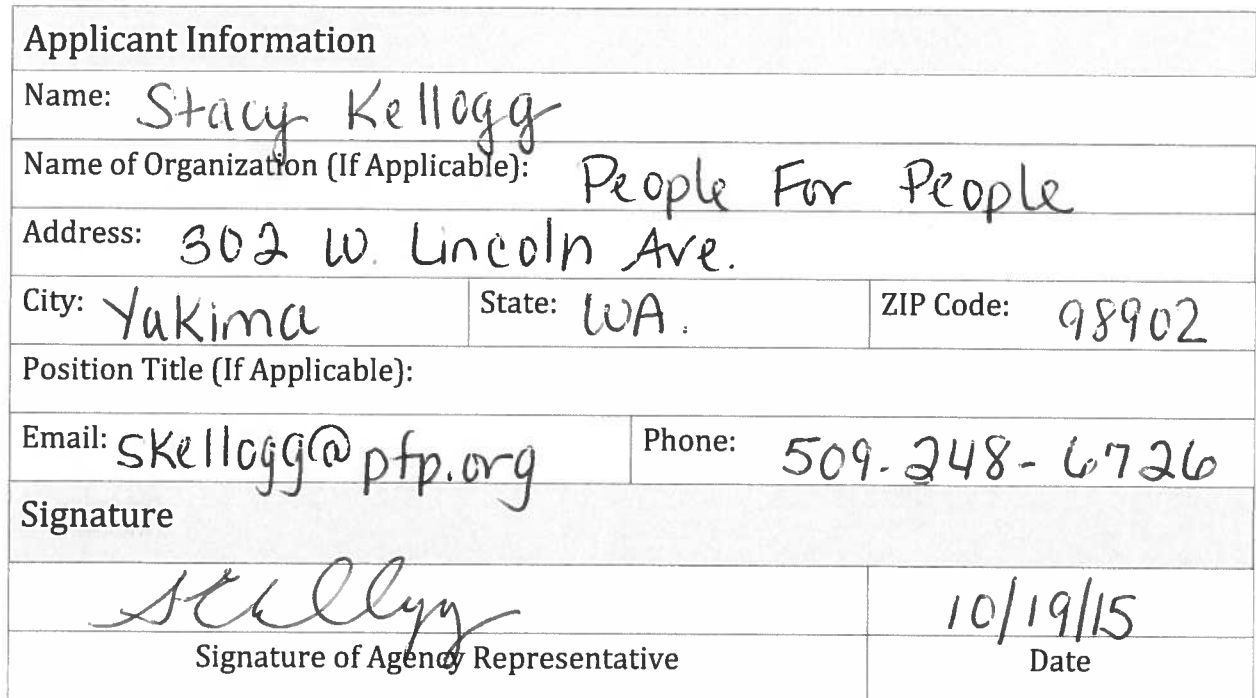 Applicant Information
Name: Stacy Kellogg
Name of Organization (If Applicable): People For People
Address: 302 W. Lincoln Ave.
City: Yakima State: WA. ZIP Code: 98902
Position Title (If Applicable):
Email: skellogg@pfp.org Phone: 509-248-6726
Signature
SKellogg 10/19/15
Signature of Agency Representative Date